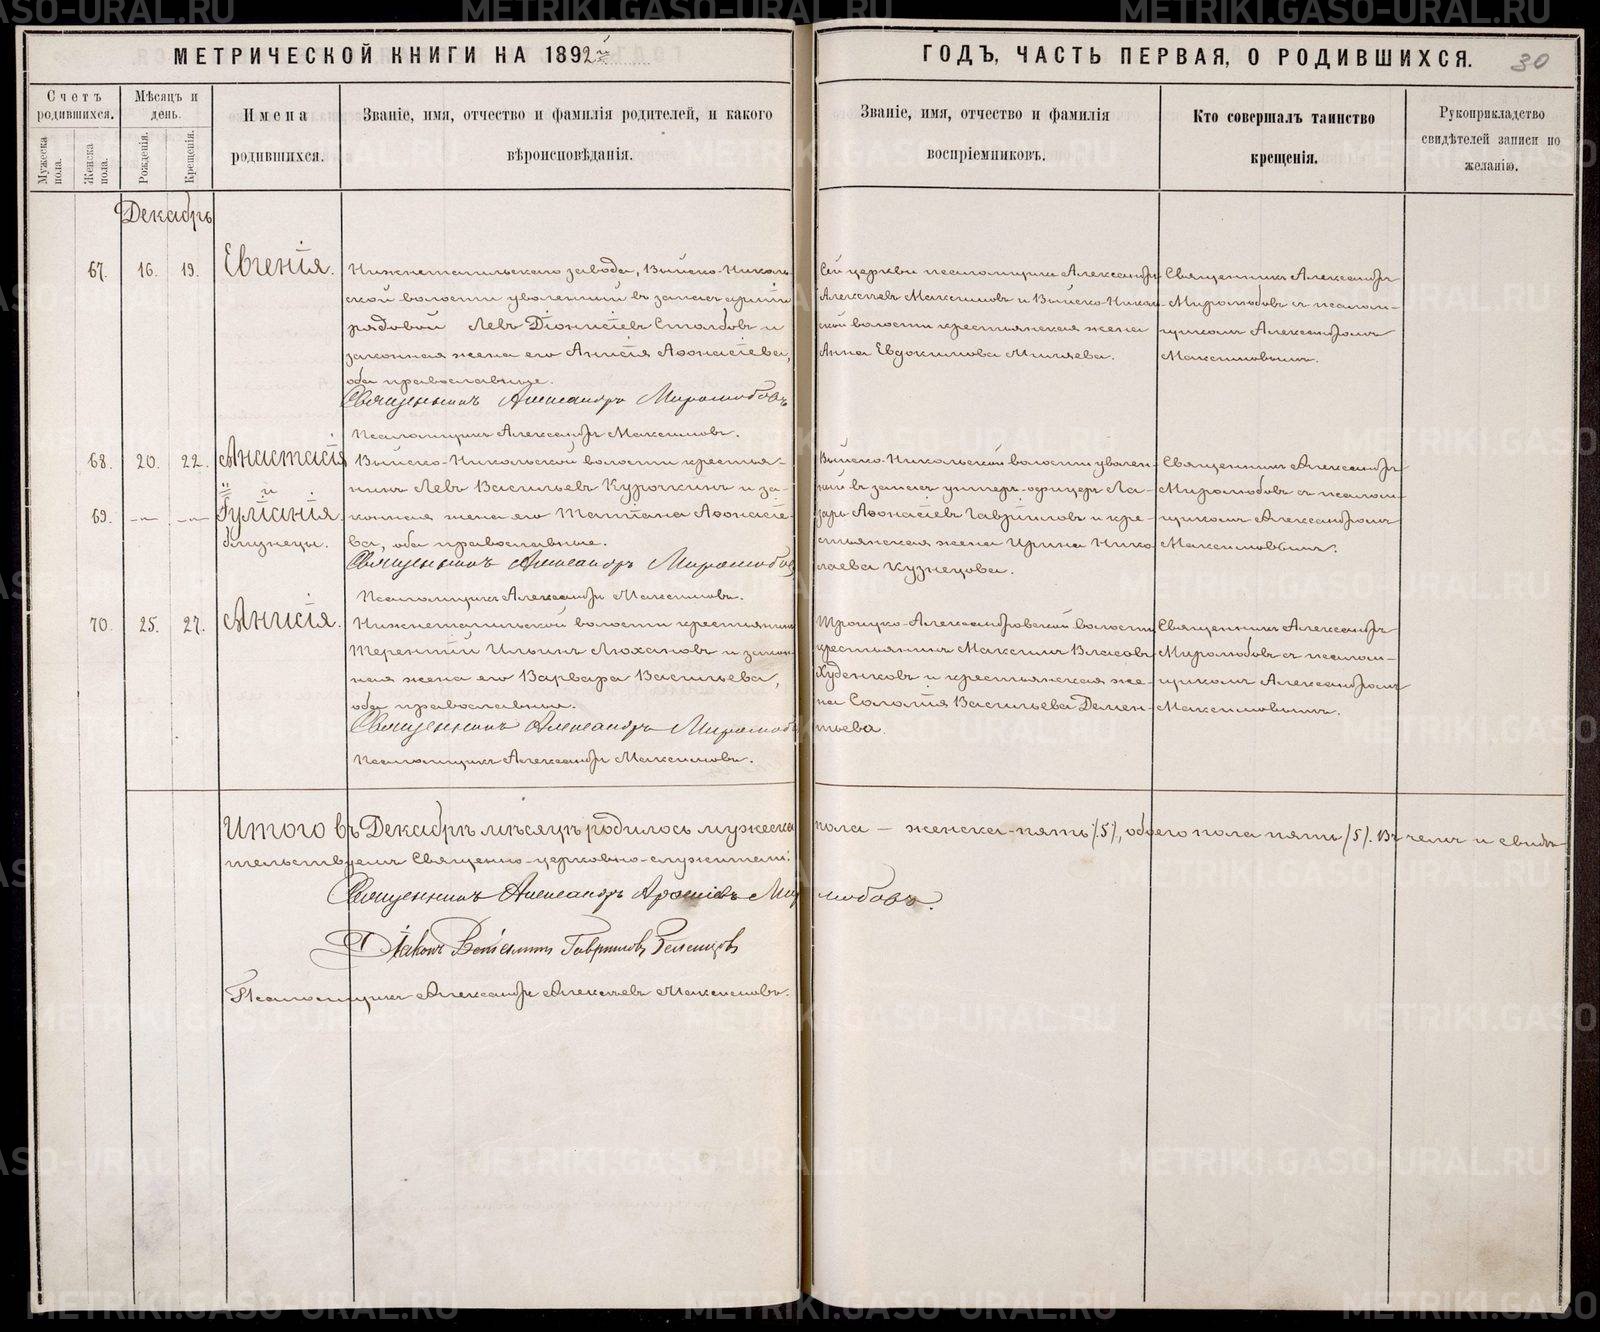 МЕТРИЧЕСКОЙ КНИГИ НА 1892й
ГОДЪ, ЧАСТЬ ПЕРВАЯ, О РОДИВШИХСЯ.
30
Счетъ родившихся.
Мужеска пола.
Женска пола.
Мѣсяцъ и день.
Рожденія.
Крещенія.
Имена родившихся.
Званіе, имя, отчество и фамилія родителей, и какого
вѣроисповѣданія.
Званіе, имя, отчество и фамилія
воспріемниковъ.
Кто совершалъ таинство
крещенія.
Рукоприкладство
свидѣтелей записи по
желанію.
Декабрь
67. 16. 19. Евгенія.
Нижнетагильскаго завода, Выйско-Николь-
ской волости уволенный въ запасъ арміи
рядовой Левъ Діонисіевъ Столбовъ и
законная жена его Анисія Аѳонасіева,
оба православные.
Священникъ Александръ Миролюбовъ
Псаломщикъ Александръ Максимовъ.
Сей церкви псаломщикъ Александръ
Алексѣевъ Максимовъ и Выйско-Николь-
ской волости крестьянская жена
Анна Евдокимова Миляева.
Священникъ Александръ
Миролюбовъ съ псалом-
щикомъ Александромъ
Максимовымъ.
68. 20. 22. Анастасія
и
69. -„- -„- Іуліанія
близнецы.
Выйско-Никольской волости крестья-
нинъ Левъ Васильевъ Курочкинъ и за-
конная жена его Татіана Аѳонасіе-
ва, оба православные.
Священникъ Александръ Миролюбовъ
Псаломщикъ Александръ Максимовъ.
Выйско-Никольской волости уволен-
ный въ запасъ унтеръ-офицеръ Ла-
зарь Аѳонасіевъ Гавріиловъ и кре-
стьянская жена Ирина Нико-
лаева Кузнецова.
Священникъ Александръ
Миролюбовъ съ псалом-
щикомъ Александромъ
Максимовымъ.
70. 25. 27. Анисія.
Нижнетагильской волости крестьянинъ
Терентій Ильинъ Люхановъ и закон-
ная жена его Варвара Васильева,
оба православныя.
Священникъ Александръ Миролюбовъ
Псаломщикъ Александръ Максимовъ.
Троицко-Александровской волости
крестьянинъ Максимъ Власовъ
Худенковъ и крестьянская же-
на Соломія Васильева Демен-
тьева.
Священникъ Александръ
Миролюбовъ съ псалом-
щикомъ Александромъ
Максимовымъ.
Итого въ Декабрѣ мѣсяцѣ родилось мужеска пола — женска-пять /5/, обоего пола пять /5/. Въ чемъ и свидѣ-
тельствуемъ Священно-церковно-служители:
Священникъ Александръ Миролюбовъ.
Діаконъ Гавриловъ
Псаломщикъ Александръ Алексѣевъ Максимовъ.
METRIKI.GASO-URAL.RU